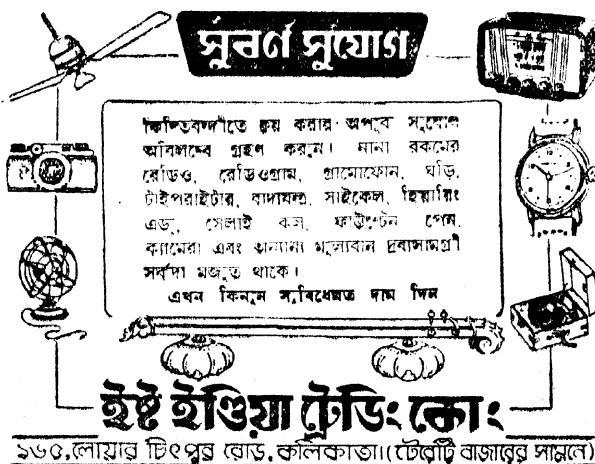 সুবর্ণ সুযোগ
কিস্তিবন্দীতে ক্রয় করার অপূর্ব সুযোগ
অবিলম্বে গ্রহণ করুন। নানা রকমের
রেডিও, রেডিওগ্রাম, গ্রামোফোন, ঘড়ি,
টাইপরাইটার, বাদ্যযন্ত্র, সাইকেল, হিয়ারিং
এড্, সেলাই কল, ফাউন্টেন পেন,
ক্যামেরা এবং অন্যান্য মূল্যবান দ্রব্যসামগ্রী
সর্বদা মজুত থাকে।
এখন কিনুন সুবিধেমত দাম দিন
ইষ্ট ইণ্ডিয়া ট্রেডিং কোং
১৬৫, লোয়ার চিৎপুর রোড, কলিকাতা। (টেরেটি বাজারের সামনে)